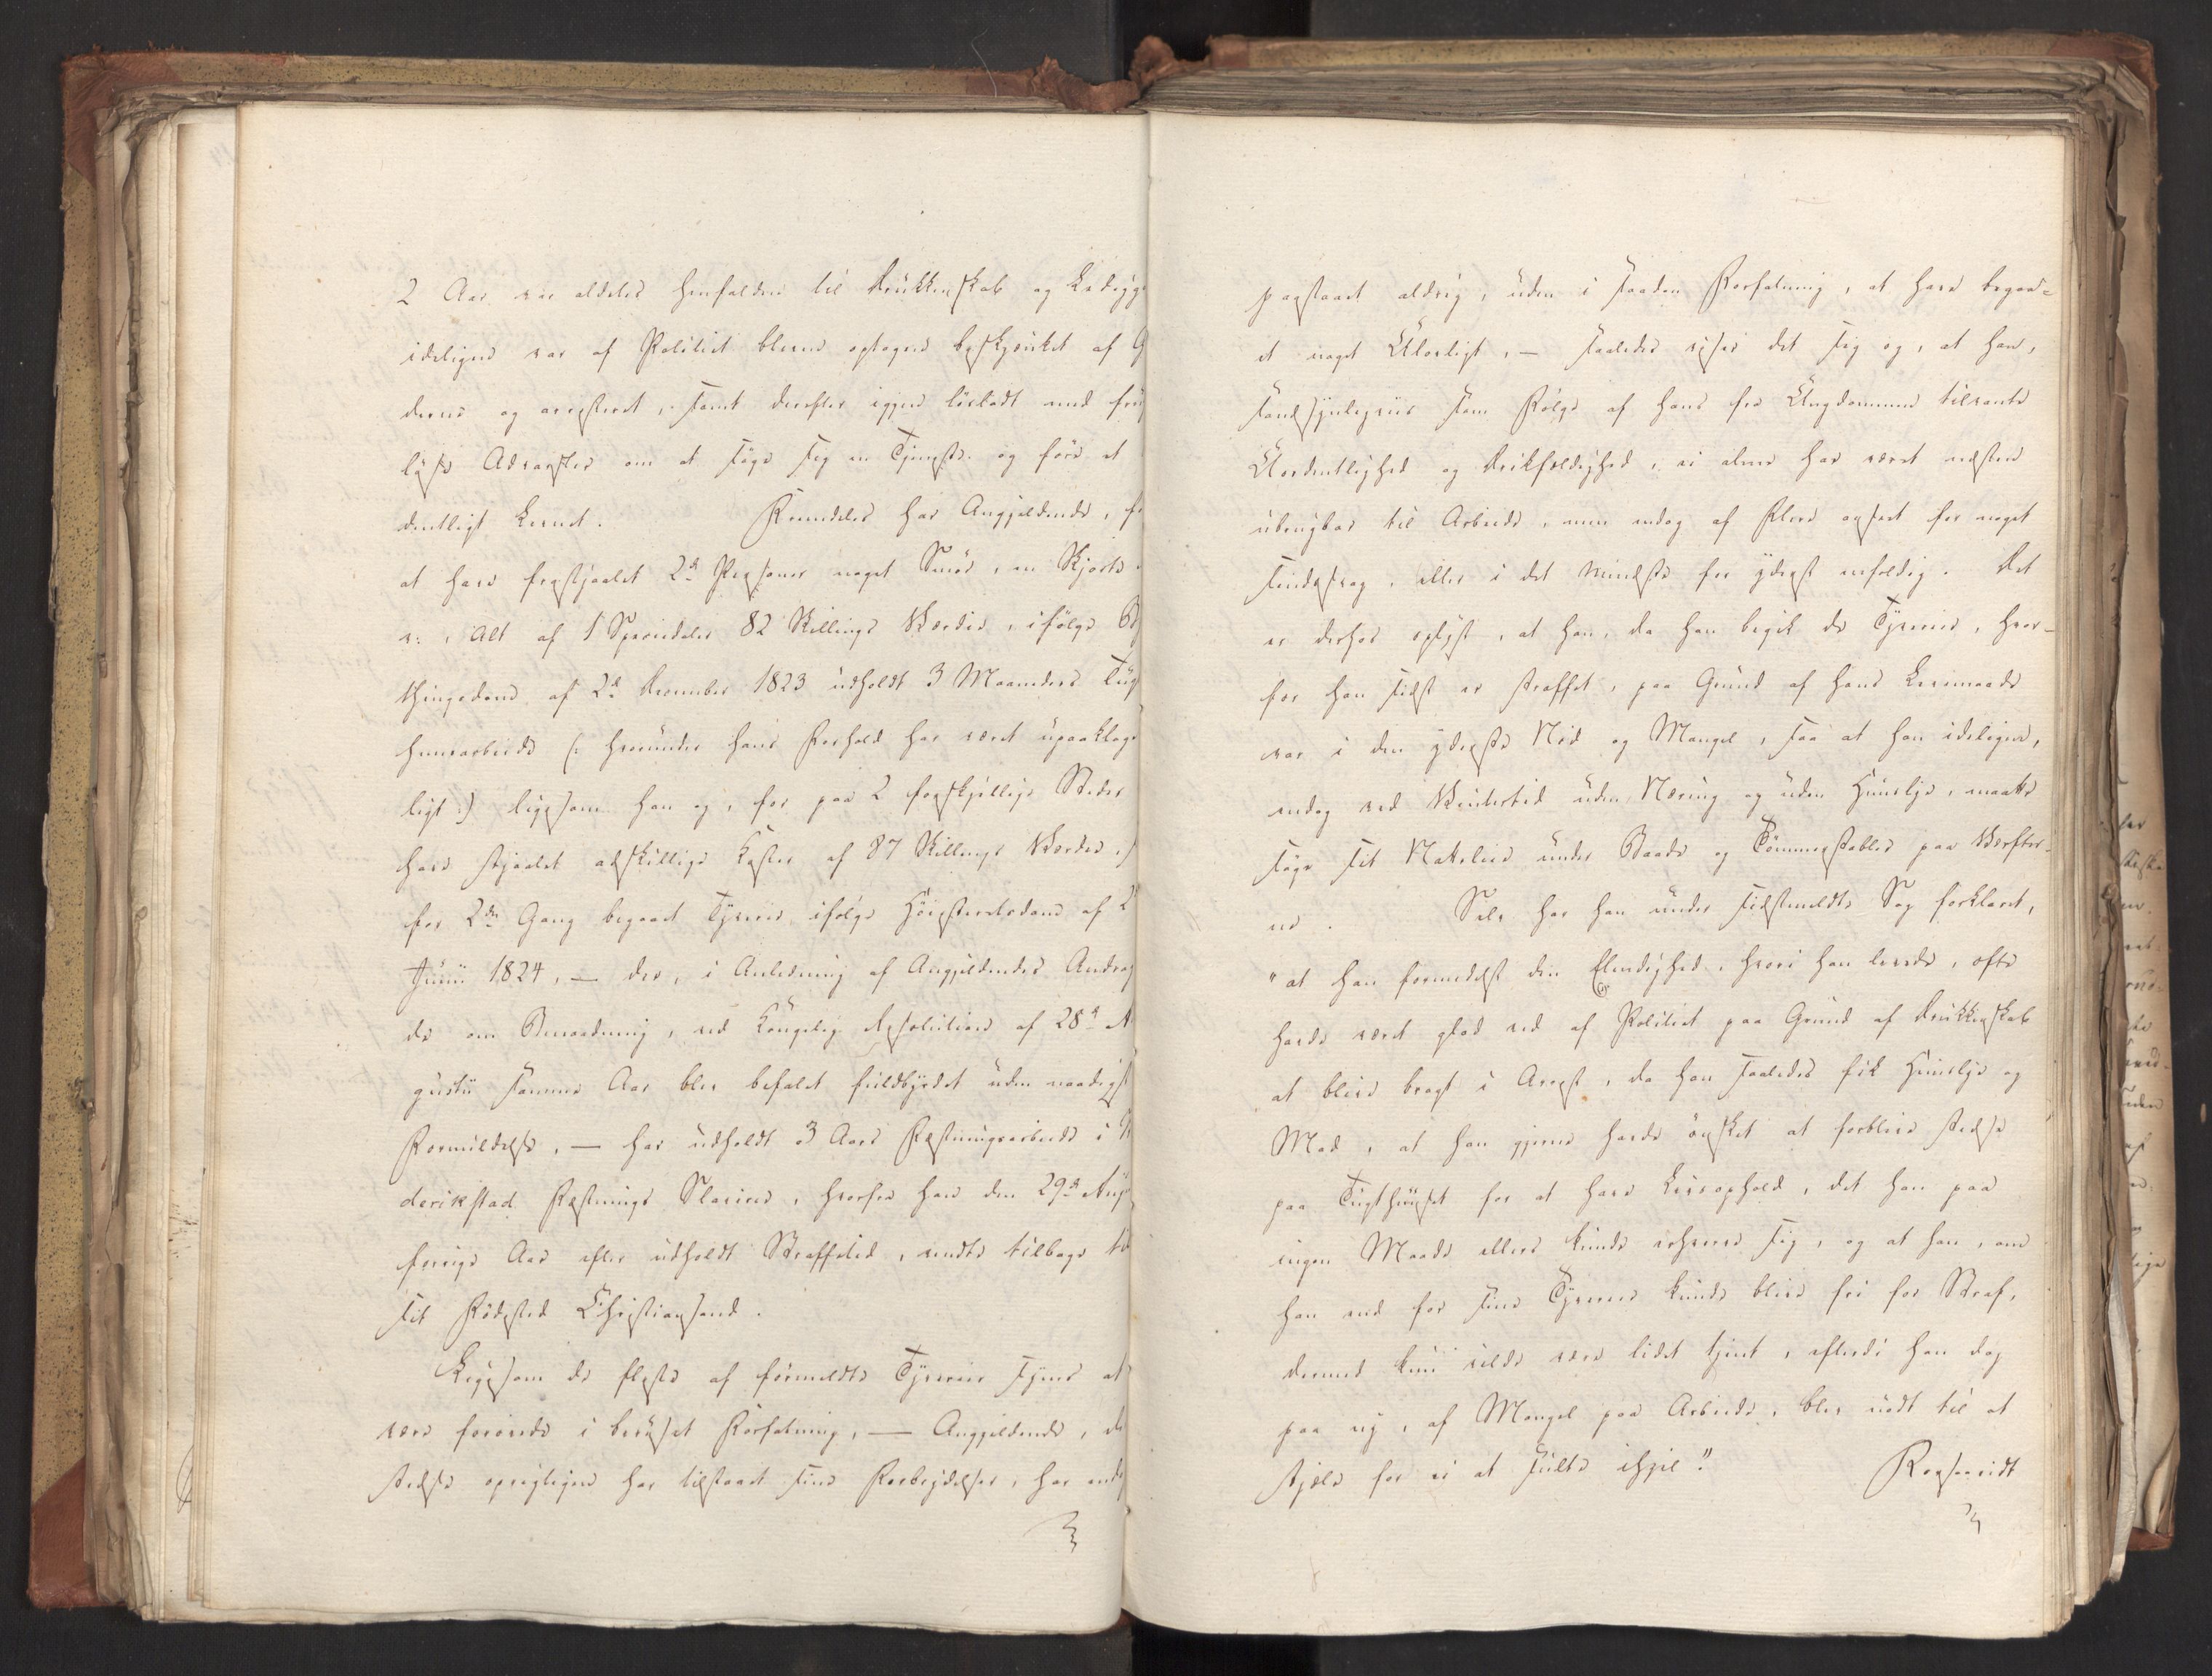 2 Aar var aldeles henfalden til Drukkenskab og Ledigg
ideligen var af Politiet bleven optagen beskjænket af G
derne og arresteret, samt derefter igjen løsladt med frug
løse Advarsler om at søge sig en Tjeneste og føre et
dentligt Levnet. Fremdeles har Angjeldende, fo
at have frastjaalet 2de Personer noget Smør, en Skjorte
v: i Alt af 1 Speciedaler 82 Skillings Værdie, ifølge By
thingsdom af 2d December 1823 udholdt 3 Maaneders Tug
huusarbeide (: hvorunder hans Forhold har været upaaklage
ligt :) ligesom han og, for paa 2 forskjellige Steder
have stjaalet adskillige Koster af 87 Skillings Værdie,
for 2den Gang begaaet Tyverie ifølge Høiesteretsdom af 2
Junii 1824, — der, i Anledning af Angjeldendes Andrag
de om Benaadning, ved Kongelig Resolution af 28de A
gustii samme Aar blev befalet fuldbyrdet uden naadigst
Formildelse, — har udholdt 3 Aars Fæstningsarbeide i Fr
derikstad Fæstnings Slaverie, hvorfra han den 29de Aug
forrige Aar efter udholdt Straffetid, sendtes tilbage til
sit Fødested Christiansand.
Ligesom de fleste af formeldte Tyverier synes at
være forøvede i beruset Forfatning, — Angjeldende, de
stedse oprigtigen har tilstaaet sine Forbrydelser, har end
paastaaet aldrig, uden i saadan Forfatning, at have begaa-
et noget Ulovligt, — saaledes viser det sig og, at han,
sandsynligviis som Følge af hans fra Ungdommen tilvante
Uordentlighed og Drikfældighed, ei alene har været næsten
ubrugbar til Arbeide, men endog af Flere anseet for noget
sindssvag, eller i det mindste for yderst enfoldig. Det
er derhos oplyst, at han, da han begik de Tyverier, hvor-
for han sidst er straffet, paa Grund af hans Levemaade
var i den yderste Nød og Mangel, saa at han ideligen,
endog ved Vintertid uden Næring og uden Huuslye, maatte
søge sit Natteleie under Baade og Tømmerstabler paa Værfter-
ne. Selv har han under sidstmeldte Sag forklaret,
"at han formedelst den Elendighed, hvori han levede, ofte
havde været glad ved af Politiet paa Grund af Drukkenskab
at blive bragt i Arrest, da han saaledes fik Huuslye og
Mad, at han gjerne havde ønsket at forblive stedse
paa Tugthuuset for at have Livsophold, det han paa
ingen Maade ellers kunde erhverve sig, og at han, om
han end for sine Tyverier kunde blive fri for Straf,
dermed kun vilde være lidet tjent, efterdi han dog
paa ny, af Mangel paa Arbeide, blev nødt til at
stjæle for ei at sulte ihjel."
Forsaavidt